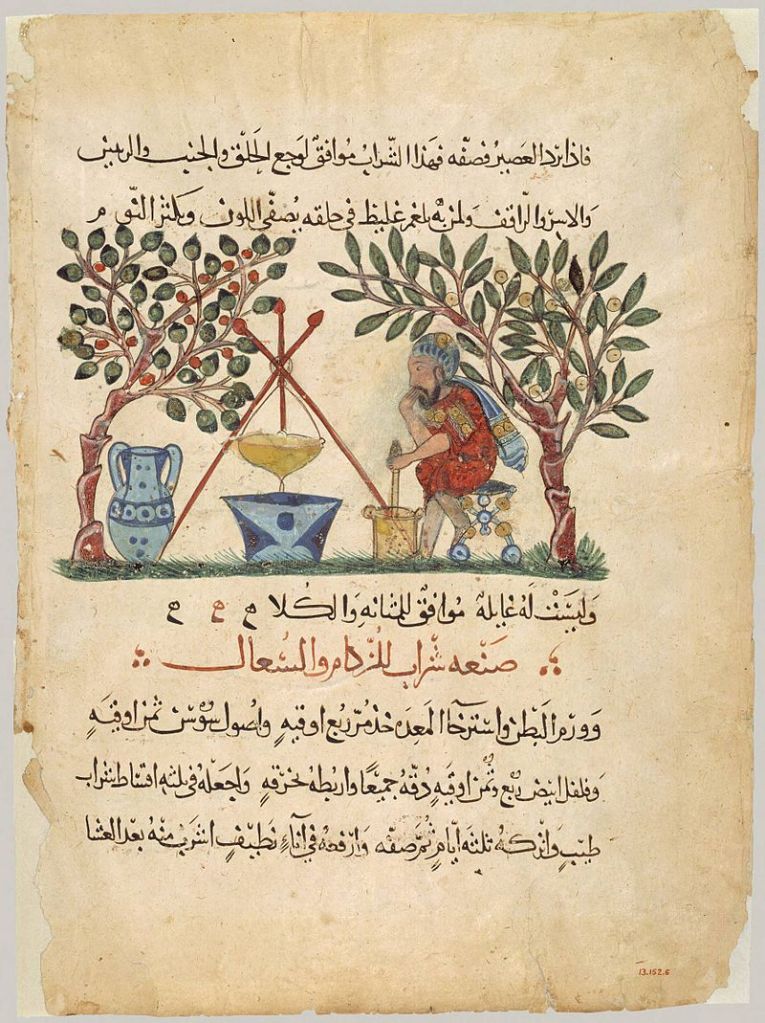 فاذا برد العصير فصفه فهذا الشراب موافق لوجع الحلق والجنب والريتين
والابر والراقف ولمن به بلغم غليظ في حلقه يصفى اللون ويكثر النوم م
وليست له غايله موافق للمثانه والكلا
صنعه شراب للزكام والسعال
وورم البطن واسترخا المعده خذ مر ربع اوقيه واصول سوسن ثمن اوقيه
وفلفل ابيض ربع وثمن اوقيه دقه جميعا واربطه بخرقه واجعله في ثلثه اقساط شراب
طيب واتركه ثلثه أيام ثم صفه وارفعه في آناء نظيف اشرب منه بعد العشا
13.152.6